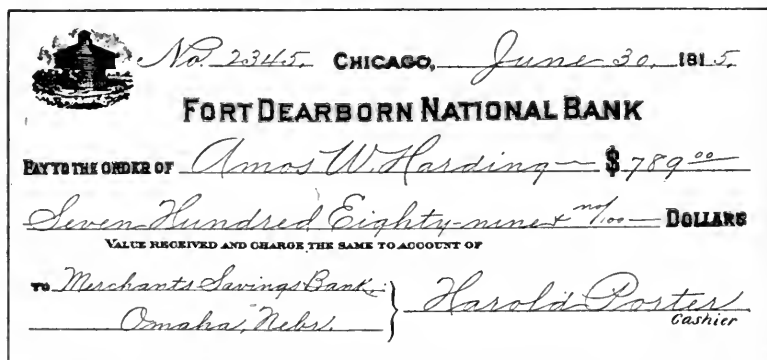 No. 2345. CHICAGO, June 30, 1815.
FORT DEARBORN NATIONAL BANK
PAY TO THE ORDER OF Amos W. Harding — $ 789 00
Seven Hundred Eighty-nine & no/100 — DOLLARS
VALUE RECEIVED AND CHARGE THE SAME TO ACCOUNT OF
TO Merchants Savings Bank, Harold Porter
Omaha, Nebr. Cashier